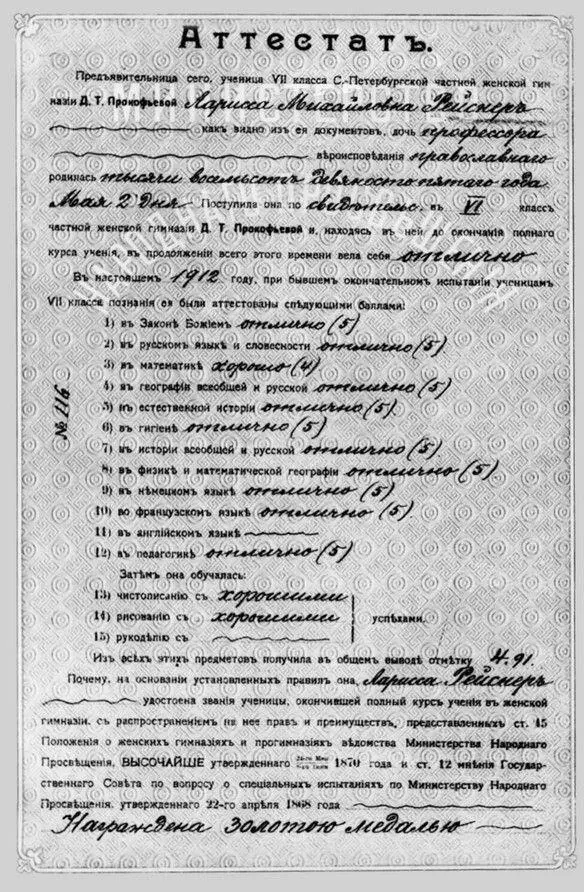 Аттестатъ.
Предъявительница сего, ученица VII класса С.-Петербургской частной женской гим-
назіи Д. Т. Прокофьевой Ларисса Михайловна Рейснеръ
какъ видно изъ ея документовъ, дочь профессора
вѣроисповѣданія православнаго
родилась тысячи восемьсотъ девяносто пятаго года
Мая 2 дня. Поступила она по свидѣтельс. въ VI классъ
частной женской гимназіи Д. Т. Прокофьевой и, находясь въ ней до окончанія полнаго
курса ученія, въ продолженіи всего этого времени вела себя отлично
Въ настоящемъ 1912 году, при бывшемъ окончательномъ испытаніи ученицамъ
VII класса познанія ея были аттестованы слѣдующими баллами:
1) въ Законѣ Божіемъ отлично (5)
2) въ русскомъ языкѣ и словесности отлично (5)
3) въ математикѣ хорошо (4)
4) въ географіи всеобщей и русской отлично (5)
5) въ естественной исторіи отлично (5)
6) въ гигіенѣ отлично (5)
7) въ исторіи всеобщей и русской отлично (5)
8) въ физикѣ и математической географіи отлично (5)
9) въ нѣмецкомъ языкѣ отлично (5)
10) во французскомъ языкѣ отлично (5)
11) въ англійскомъ языкѣ
12) въ педагогикѣ отлично (5)
№ 116
Затѣмъ она обучалась:
13) чистописанію съ хорошими
14) рисованію съ хорошими успѣхами.
15) рукодѣлію съ
Изъ всѣхъ этихъ предметовъ получила въ общемъ выводѣ отмѣтку 4.91.
Почему, на основаніи установленныхъ правилъ она, Ларисса Рейснеръ
удостоена званія ученицы, окончившей полный курсъ ученія въ женской
гимназіи, съ распространеніемъ на нее правъ и преимуществъ, предоставленныхъ ст. 45
Положенія о женскихъ гимназіяхъ и прогимназіяхъ вѣдомства Министерства Народнаго
Просвѣщенія, ВЫСОЧАЙШЕ утвержденнаго 1870 года и ст. 12 мнѣнія Государ-
ственнаго Совѣта по вопросу о спеціальныхъ испытаніяхъ по Министерству Народнаго
Просвѣщенія, утвержденнаго 22-го апрѣля 1868 года
Награждена золотою медалью